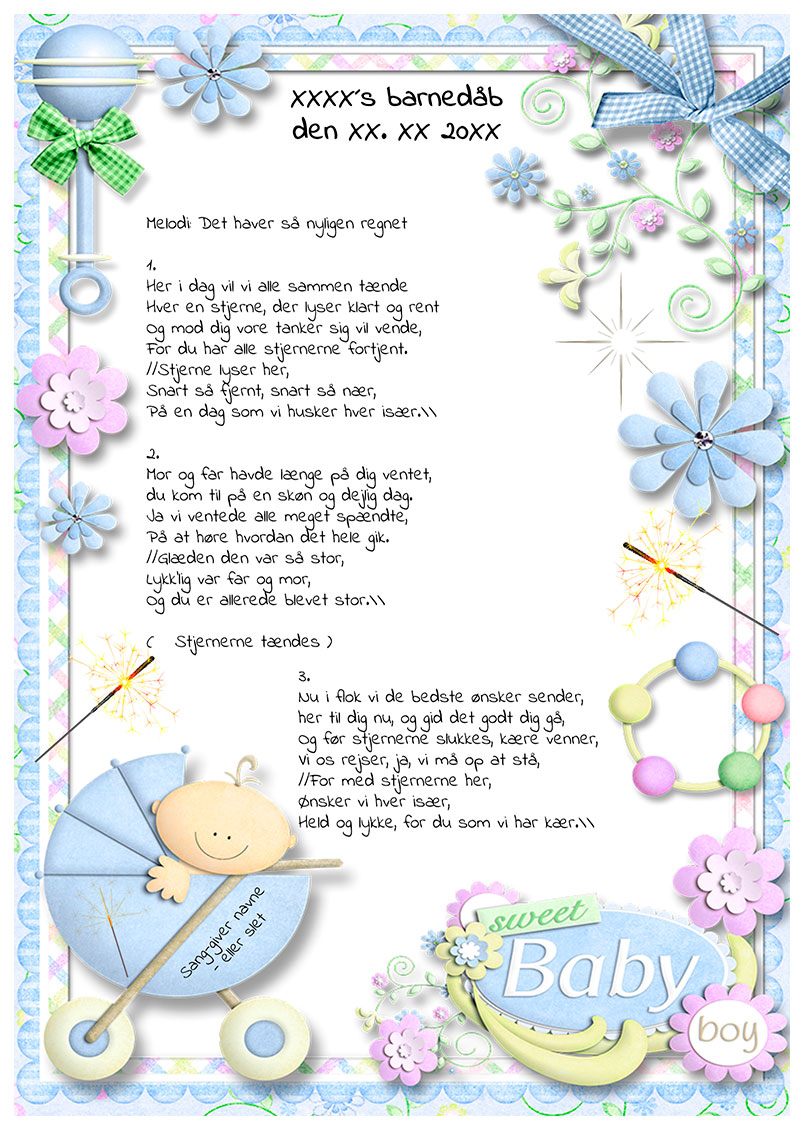 xxxx's barnedåb
den xx. xx 20xx
Melodi: Det haver så nyligen regnet
1.
Her i dag vil vi alle sammen tænde
Hver en stjerne, der lyser klart og rent
Og mod dig vore tanker sig vil vende,
For du har alle stjernerne fortjent.
//Stjerne lyser her,
Snart så fjernt, snart så nær,
På en dag som vi husker hver især.\\
2.
Mor og far havde længe på dig ventet,
du kom til på en skøn og dejlig dag.
Ja vi ventede alle meget spændte,
På at høre hvordan det hele gik.
//Glæden den var så stor,
Lykk'lig var far og mor,
Og du er allerede blevet stor.\\
( Stjernerne tændes )
3.
Nu i flok vi de bedste ønsker sender,
her til dig nu, og gid det godt dig gå,
Og før stjernerne slukkes, kære venner,
Vi os rejser, ja, vi må op at stå,
//For med stjernerne her,
Ønsker vi hver især,
Held og lykke, for du som vi har kær.\\
Sang-giver navne
- eller slet
sweet
Baby
boy